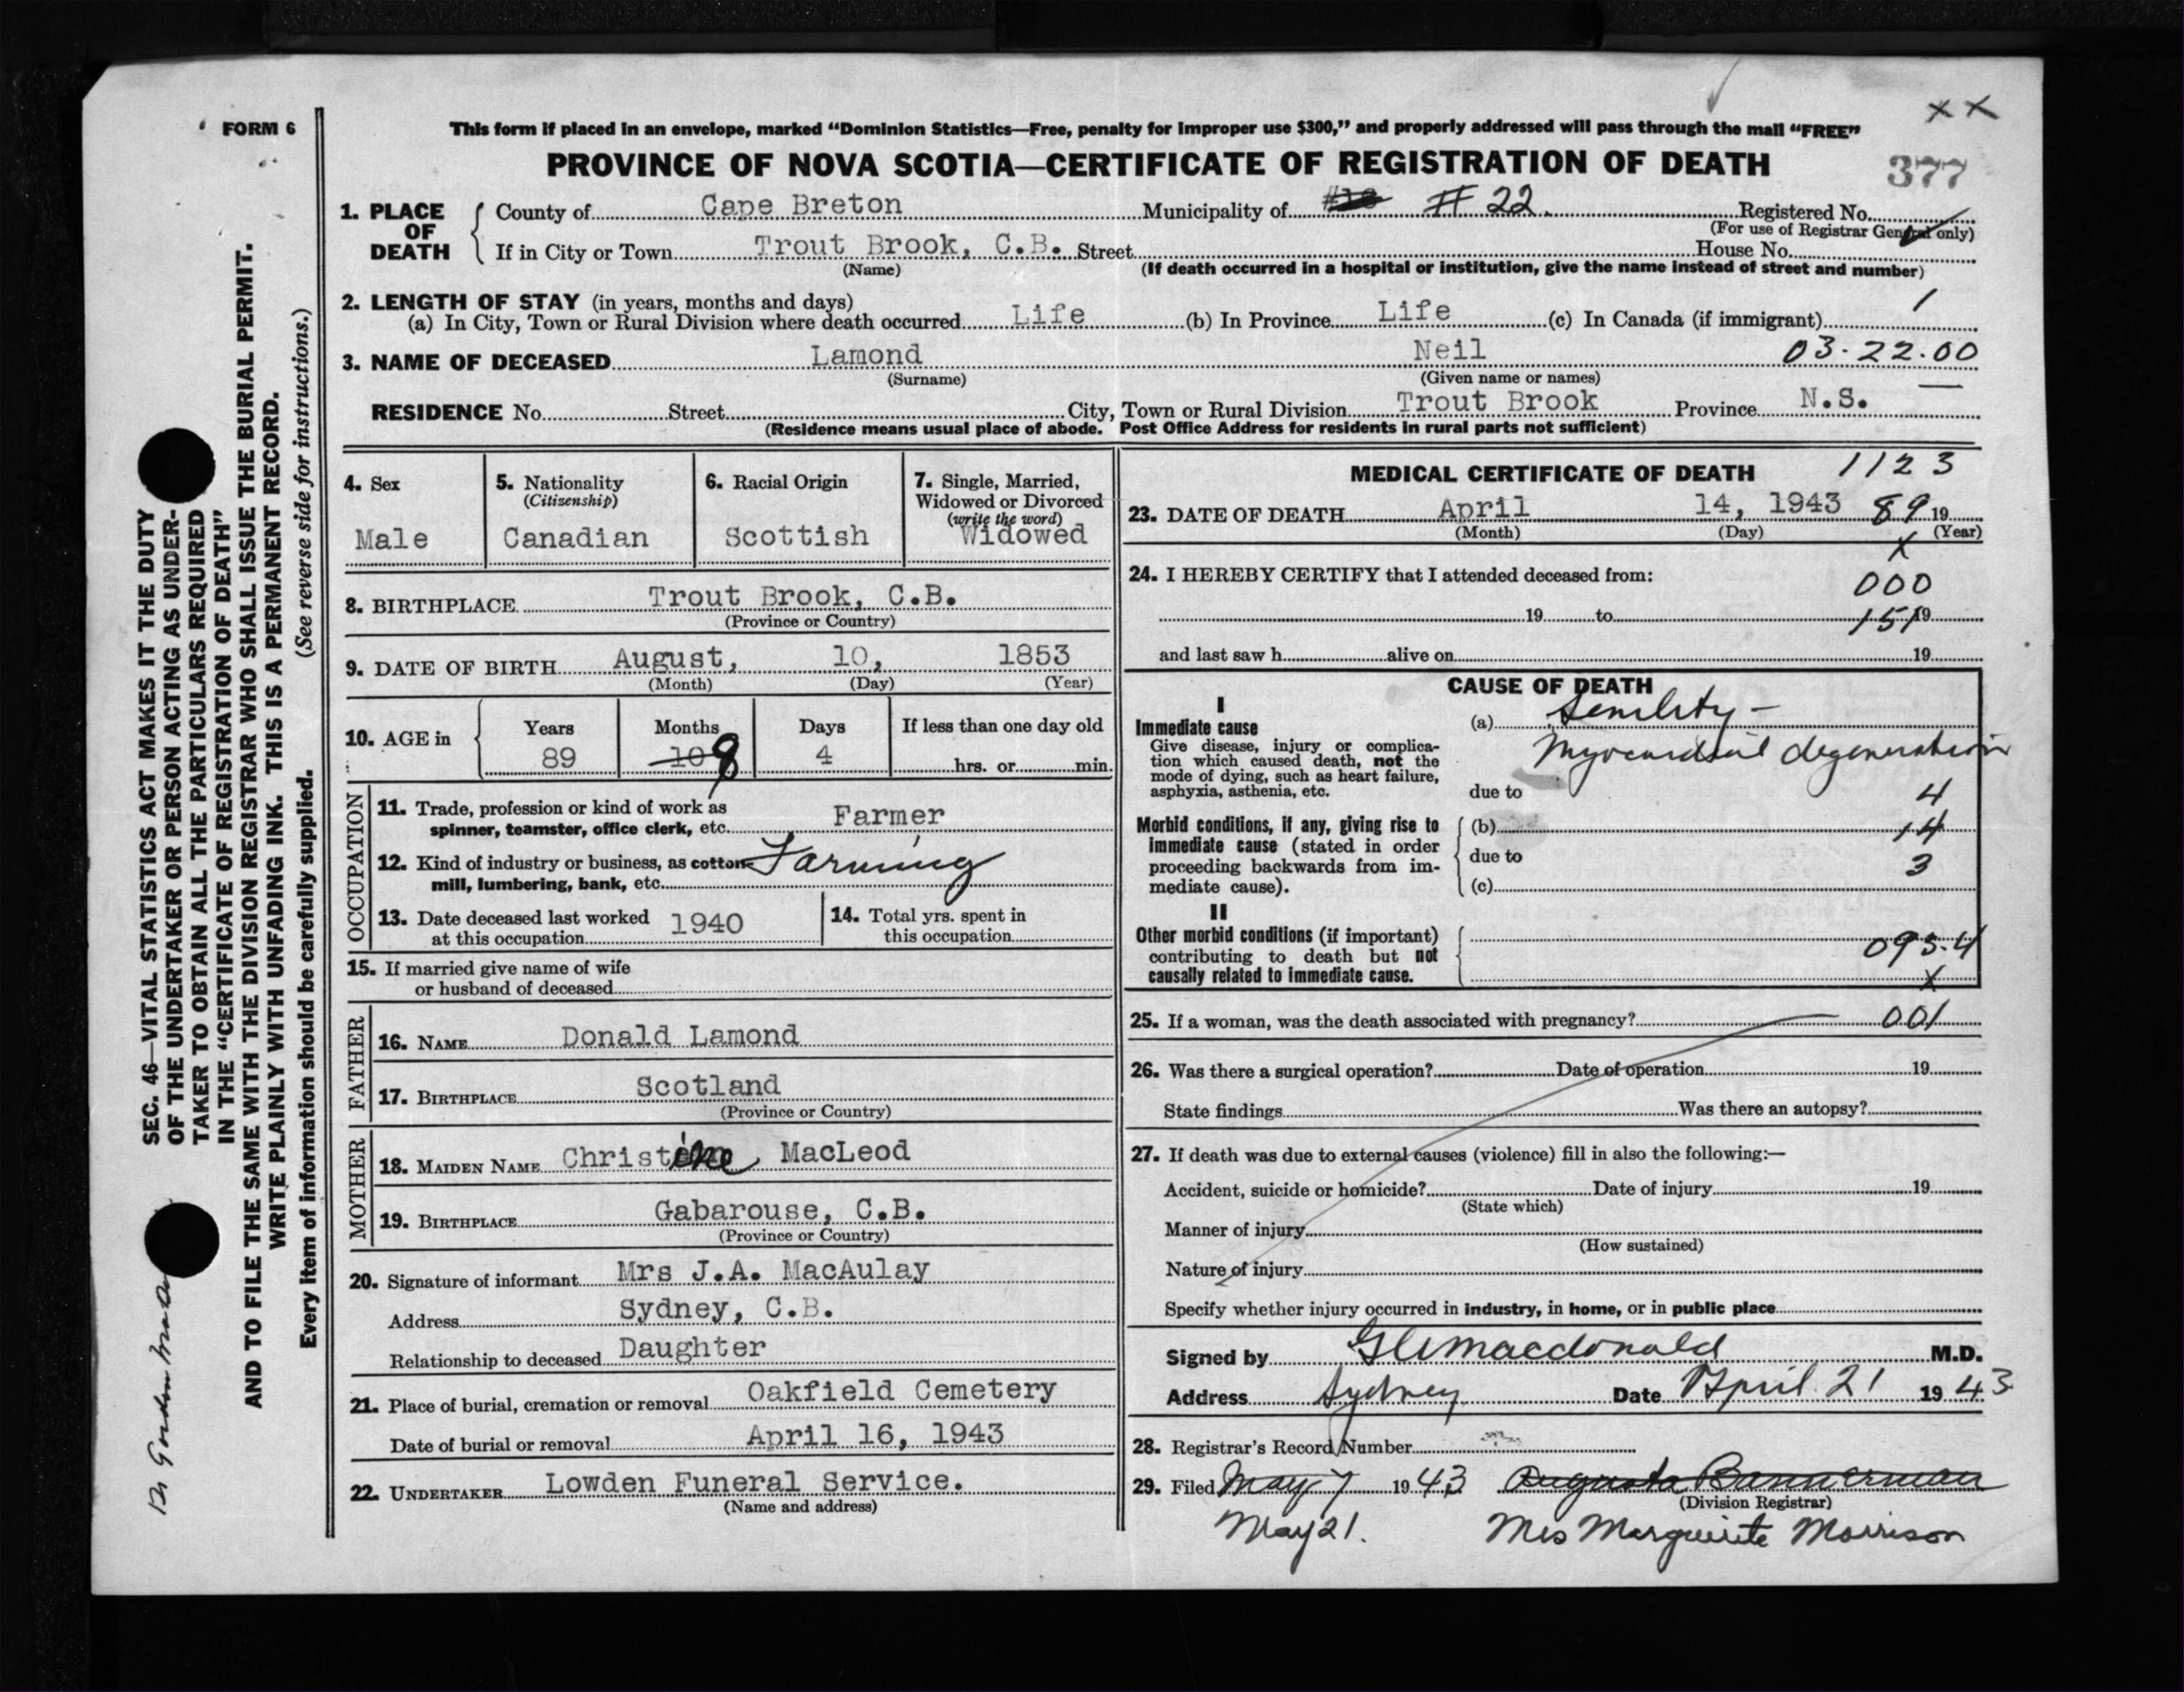 FORM 6
This form if placed in an envelope, marked “Dominion Statistics—Free, penalty for improper use $300,” and properly addressed will pass through the mail “FREE”
XX
PROVINCE OF NOVA SCOTIA—CERTIFICATE OF REGISTRATION OF DEATH
377
1. PLACE OF DEATH
County of Cape Breton Municipality of #18 # 22. Registered No.
(For use of Registrar General only)
If in City or Town Trout Brook, C.B. Street House No.
(Name) (If death occurred in a hospital or institution, give the name instead of street and number)
2. LENGTH OF STAY (in years, months and days) 1
(a) In City, Town or Rural Division where death occurred Life (b) In Province Life (c) In Canada (if immigrant)
3. NAME OF DECEASED Lamond Neil 03-22.00
(Surname) (Given name or names)
RESIDENCE No. Street City, Town or Rural Division Trout Brook Province N.S.
(Residence means usual place of abode. Post Office Address for residents in rural parts not sufficient)
4. Sex
Male
5. Nationality
(Citizenship)
Canadian
6. Racial Origin
Scottish
7. Single, Married,
Widowed or Divorced
(write the word)
Widowed
8. BIRTHPLACE Trout Brook, C.B.
(Province or Country)
9. DATE OF BIRTH August, 10, 1853
(Month) (Day) (Year)
10. AGE in
Years Months Days If less than one day old
89 10 8 4 hrs. or min.
OCCUPATION
11. Trade, profession or kind of work as
spinner, teamster, office clerk, etc. Farmer
12. Kind of industry or business, as cotton Farming
mill, lumbering, bank, etc.
13. Date deceased last worked
at this occupation 1940
14. Total yrs. spent in
this occupation
15. If married give name of wife
or husband of deceased
FATHER
16. NAME Donald Lamond
17. BIRTHPLACE Scotland
(Province or Country)
MOTHER
18. MAIDEN NAME Christine MacLeod
19. BIRTHPLACE Gabarouse, C.B.
(Province or Country)
20. Signature of informant Mrs J.A. MacAulay
Address Sydney, C.B.
Relationship to deceased Daughter
21. Place of burial, cremation or removal Oakfield Cemetery
Date of burial or removal April 16, 1943
22. UNDERTAKER Lowden Funeral Service.
(Name and address)
MEDICAL CERTIFICATE OF DEATH 1123
23. DATE OF DEATH April 14, 1943 89 19
(Month) (Day) (Year)
X
24. I HEREBY CERTIFY that I attended deceased from:
000
19 to 19
151
and last saw h alive on 19
CAUSE OF DEATH
I
Immediate cause
Give disease, injury or complica-
tion which caused death, not the
mode of dying, such as heart failure,
asphyxia, asthenia, etc.
(a) Senility -
Myocardial degeneration
due to 4
Morbid conditions, if any, giving rise to
immediate cause (stated in order
proceeding backwards from im-
mediate cause).
(b) 14
due to 3
(c)
II
Other morbid conditions (if important)
contributing to death but not
causally related to immediate cause.
093.4
X
25. If a woman, was the death associated with pregnancy? 001
26. Was there a surgical operation? Date of operation 19
State findings Was there an autopsy?
27. If death was due to external causes (violence) fill in also the following:—
Accident, suicide or homicide? Date of injury 19
(State which)
Manner of injury
(How sustained)
Nature of injury
Specify whether injury occurred in industry, in home, or in public place
Signed by Macdonald M.D.
Address Sydney Date April 21 1943
28. Registrar's Record Number
29. Filed May 7 1943 Augusta Bannerman
(Division Registrar)
May 21. Mrs Marguerite Morrison
SEC. 46—VITAL STATISTICS ACT MAKES IT THE DUTY
OF THE UNDERTAKER OR PERSON ACTING AS UNDER-
TAKER TO OBTAIN ALL THE PARTICULARS REQUIRED
IN THE “CERTIFICATE OF REGISTRATION OF DEATH”
AND TO FILE THE SAME WITH THE DIVISION REGISTRAR WHO SHALL ISSUE THE BURIAL PERMIT.
WRITE PLAINLY WITH UNFADING INK. THIS IS A PERMANENT RECORD.
Every item of information should be carefully supplied. (See reverse side for instructions.)
Dr Gordon